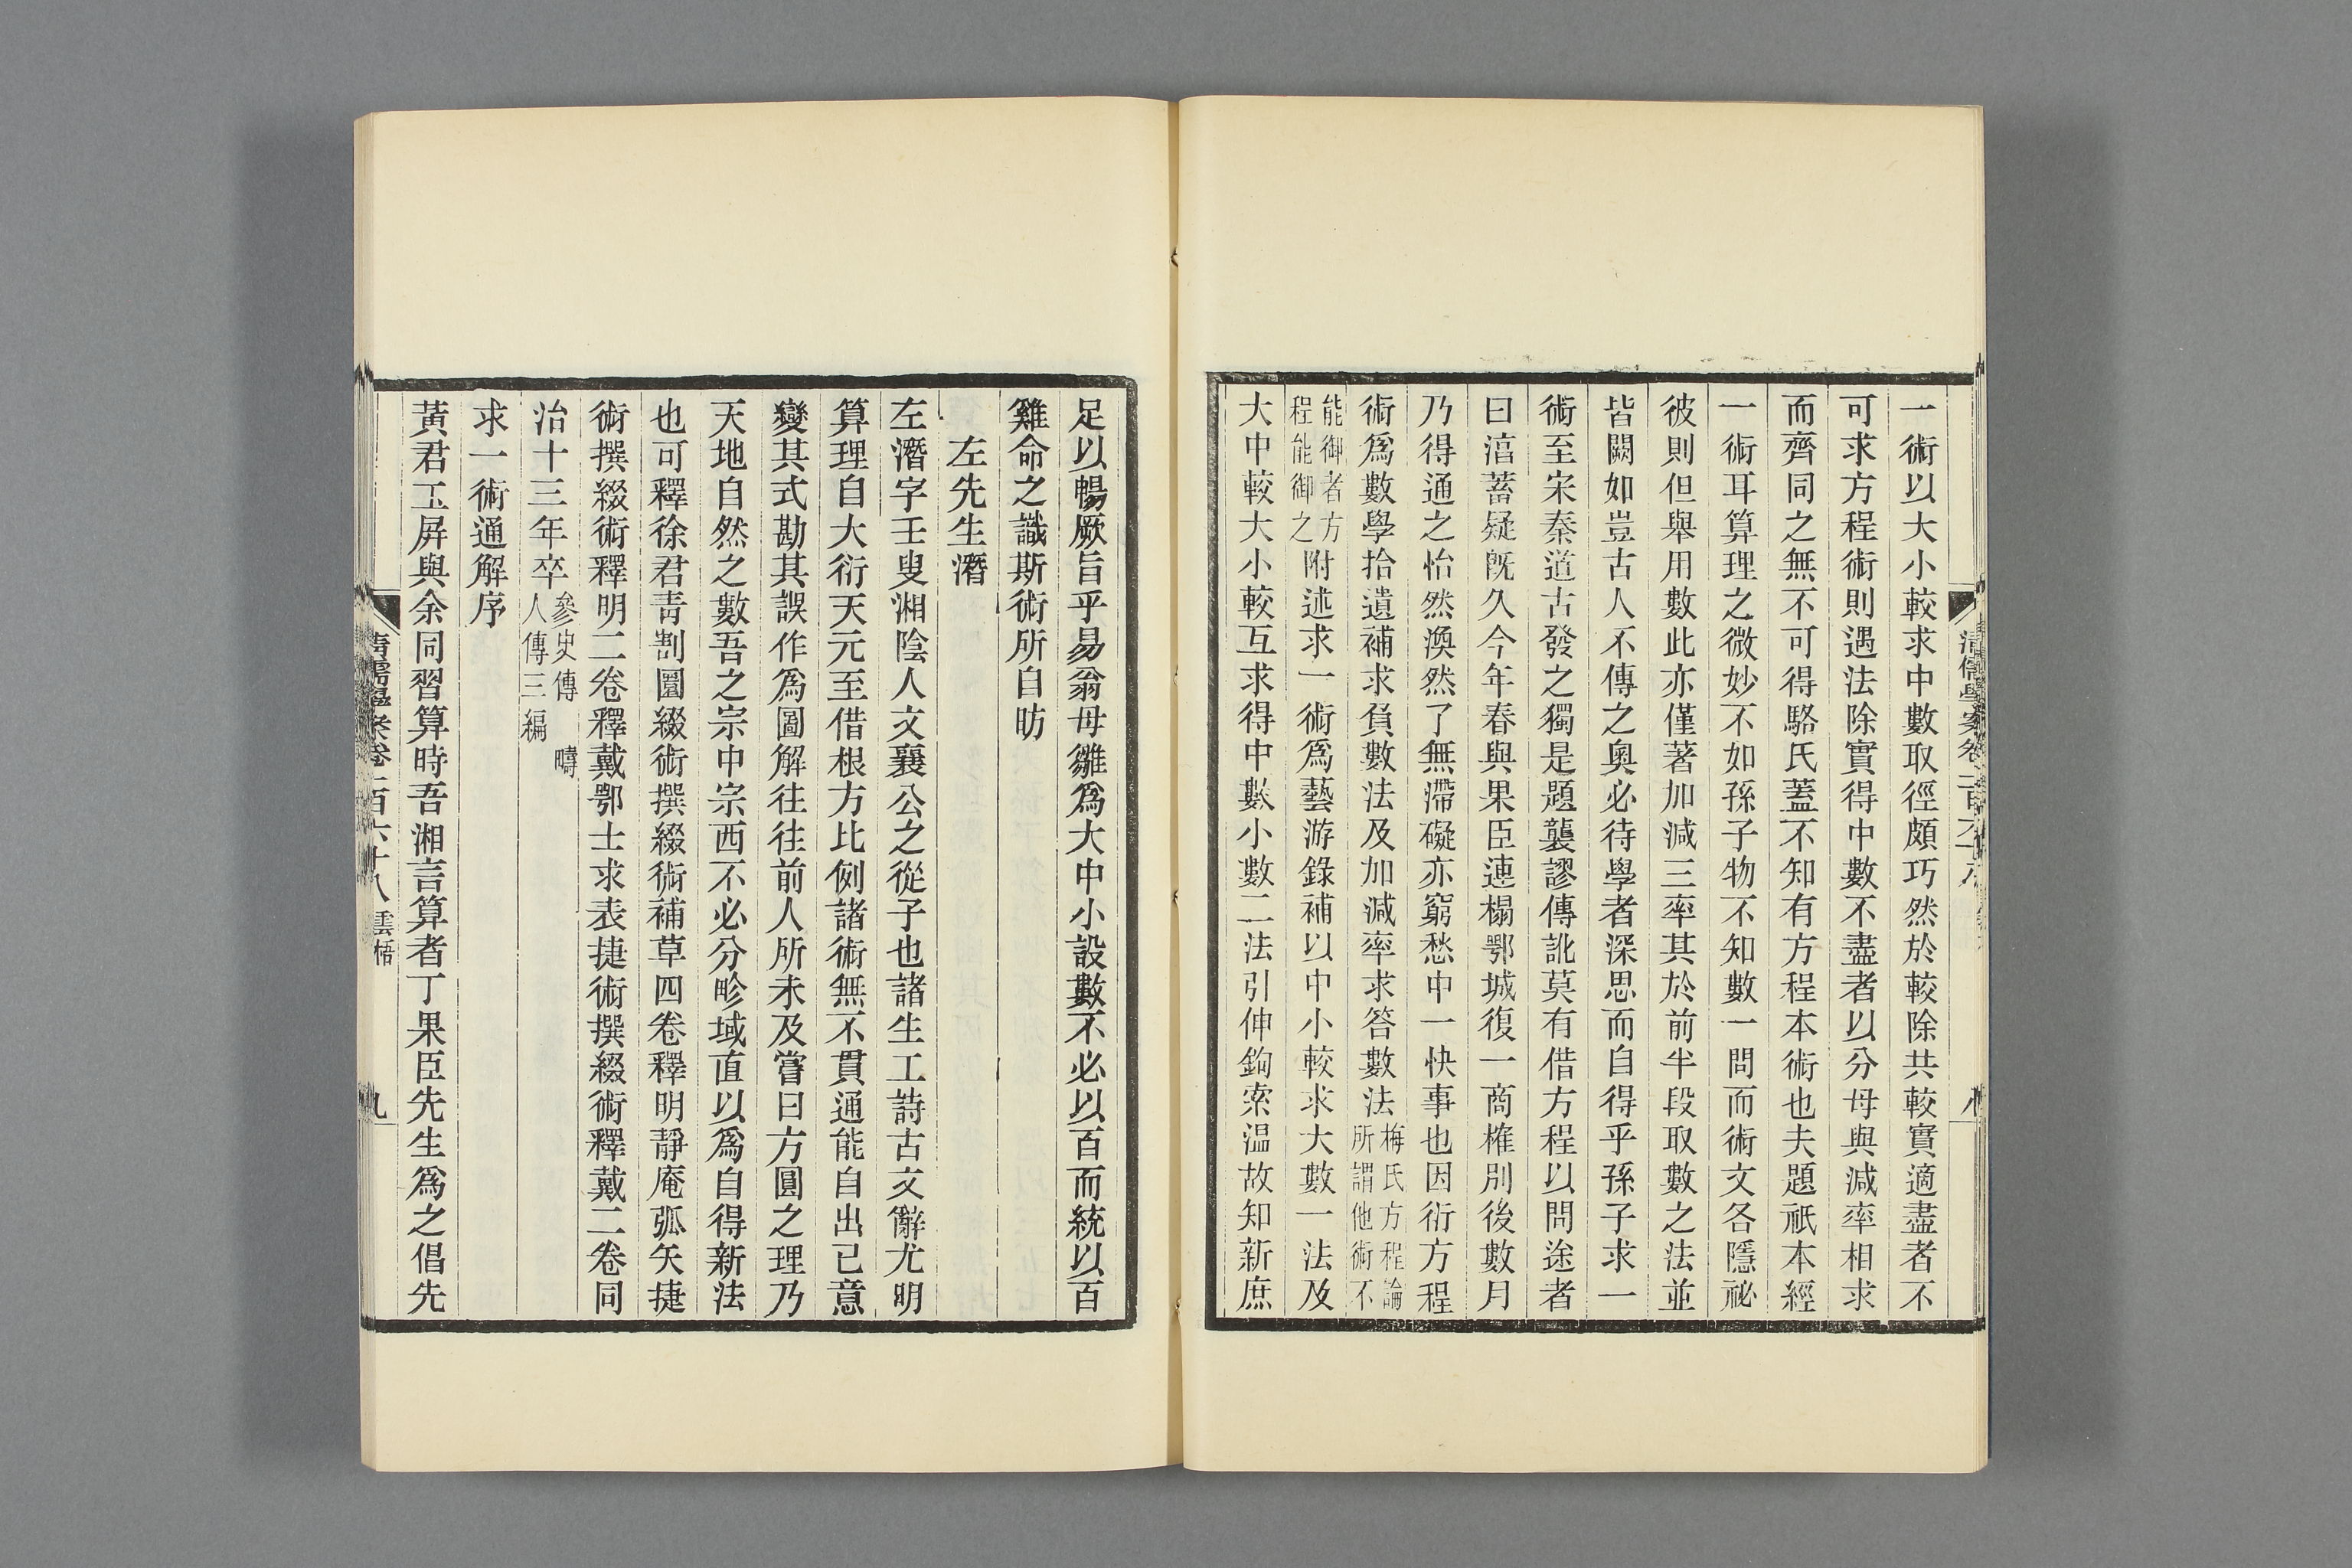 一術以大小較求中數取徑頗巧然於較除共較實適盡者不
可求方程術則遇法除實得中數不盡者以分母與減率相求
而齊同之無不可得駱氏蓋不知有方程本術也夫題祇本經
一術耳算理之微妙不如孫子物不知數一問而術文各隱祕
彼則但舉用數此亦僅著加減三率其於前半段取數之法並
皆闕如豈古人不傳之奧必待學者深思而自得乎孫子求一
術至宋秦道古發之獨是題襲謬傳訛莫有借方程以問途者
曰湻蓄疑旣久今年春與果臣連榻鄂城復一商榷別後數月
乃得通之怡然渙然了無滯礙亦窮愁中一快事也因衍方程
術爲數學拾遺補求負數法及加減率求答數法梅氏方程論
所謂他術不
能御者方
程能御之附述求一術爲藝游錄補以中小較求大數一法及
大中較大小較互求得中數小數二法引伸鉤索温故知新庶
清儒學案卷一百六十八
八
足以暢厥旨乎易翁母雛爲大中小設數不必以百而統以百
雞命之識斯術所自昉
左先生潛
左潛字壬叟湘陰人文襄公之從子也諸生工詩古文辭尤明
算理自大衍天元至借根方比例諸術無不貫通能自出己意
變其式勘其誤作爲圖解往往前人所未及嘗曰方圓之理乃
天地自然之數吾之宗中宗西不必分畛域直以爲自得新法
也可釋徐君青割圜綴術撰綴術補草四卷釋明靜庵弧矢捷
術撰綴術釋明二卷釋戴鄂士求表捷術撰綴術釋戴二卷同
治十三年卒參史傳 疇
人傳三編
求一術通解序
黃君玉屏與余同習算時吾湘言算者丁果臣先生爲之倡先
清儒學案卷一百六十八 雲梧
九